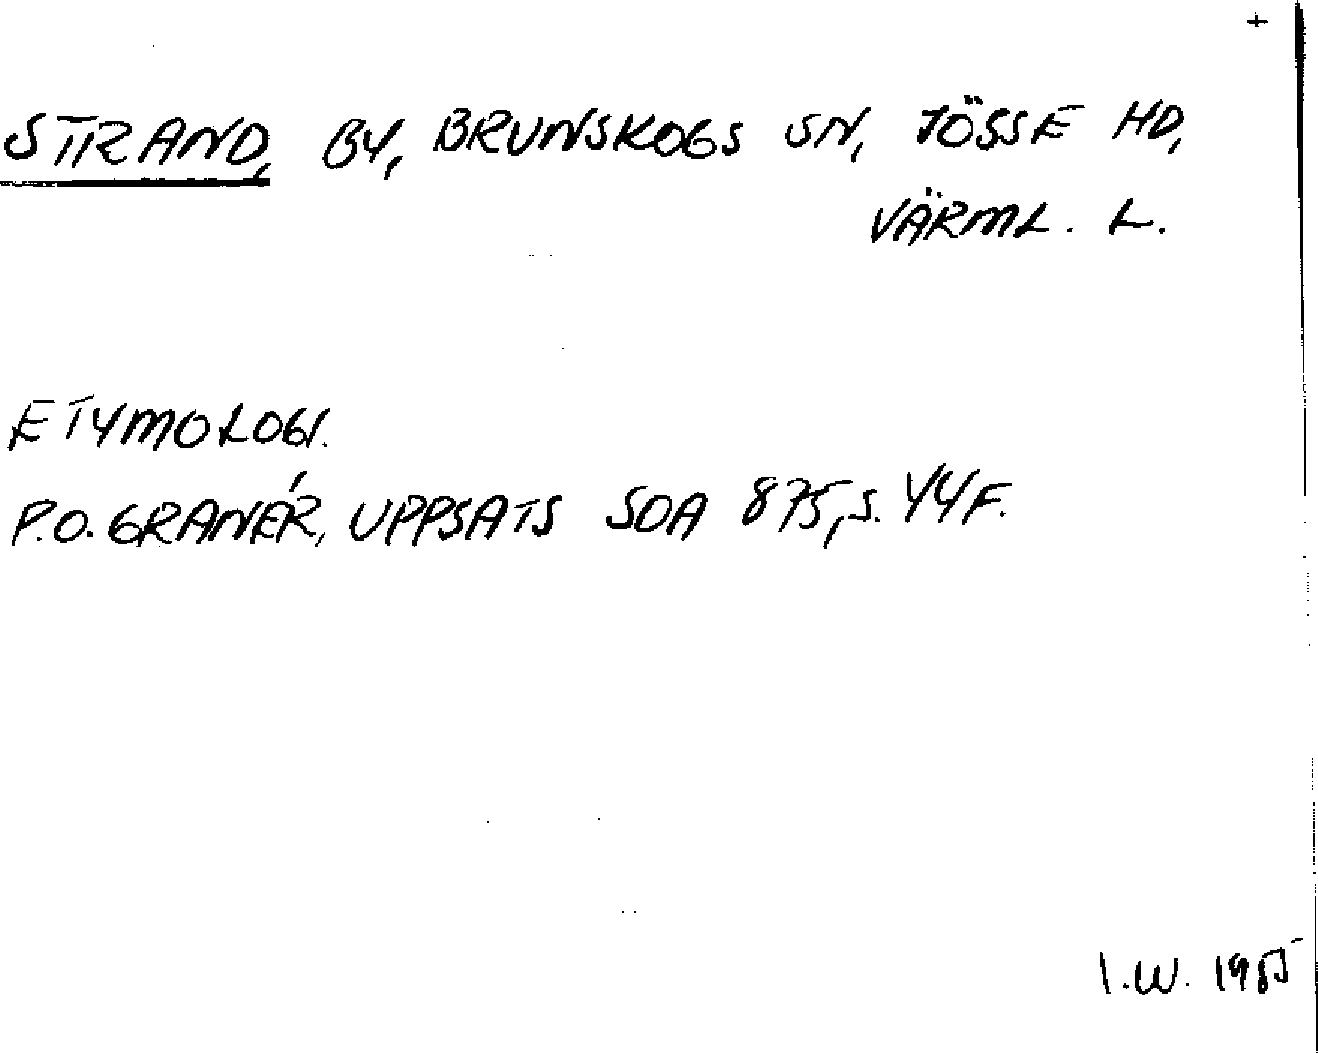 +
STRAND, BY, BRUNSKOGS SN, JÖSSE HD,
VÄRML. L.
ETYMOLOGI.
P.O. GRANÉR, UPPSATS SOA 875, S. 44F.
I.W. 1985